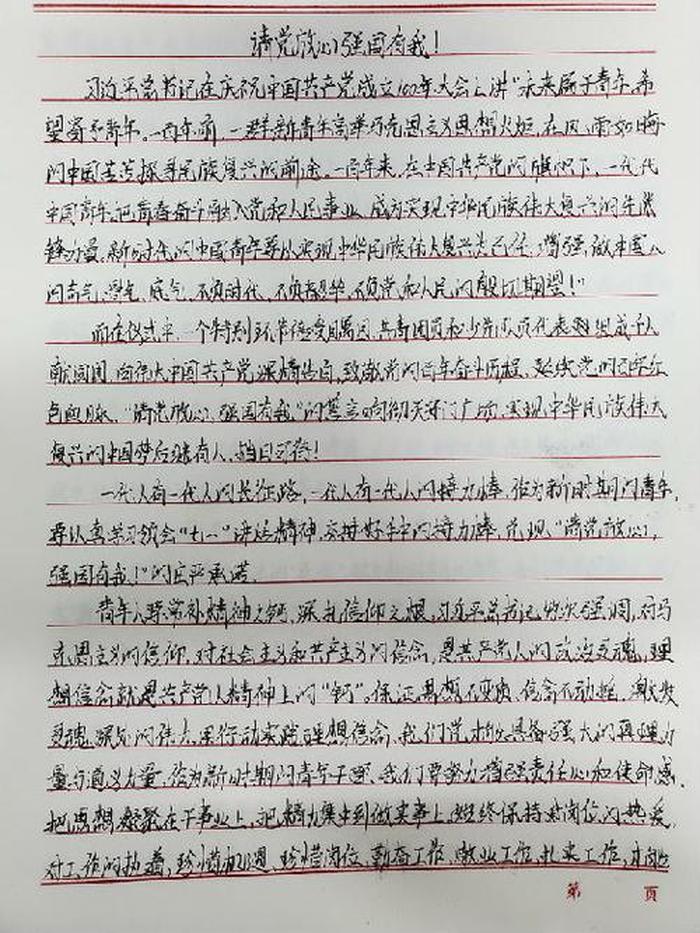 请党放心强国有我！
习近平总书记在庆祝中国共产党成立100年大会上讲“未来属于青年，希
望寄予青年。一百年前，一群新青年高举马克思主义思想火炬，在风雨如晦
的中国苦苦探寻民族复兴的前途。一百年来，在中国共产党的旗帜下，一代代
中国青年把青春奋斗融入党和人民事业，成为实现中华民族伟大复兴的先
锋力量。新时代的中国青年要以实现中华民族伟大复兴为己任，增强做中国人
的志气、骨气、底气，不负时代，不负韶华，不负党和人民的殷切期望！”
而在仪式中，一个特别环节倍受瞩目，共青团员和少先队员代表
献词团，向伟大中国共产党深情告白，致敬党的百年奋斗历程，延续党的百年红
色血脉，“请党放心，强国有我”的誓言响彻天安门广场，实现中华民族伟大
复兴的中国梦后继有人、指日可待！
一代人有一代人的长征路，一代人有一代人的接力棒，作为新时期的青年，
要认真学习领会“七一”讲话精神，交接好手中的接力棒，兑现“请党放心，
强国有我！”的庄严承诺。
青年人要常补精神之钙，深扎信仰之根，习近平总书记多次强调，对马
克思主义的信仰，对社会主义和共产主义的信念，是共产党人的政治灵魂，理
想信念就是共产党人精神上的“钙”。保证思想不变质，信念不动摇，激发
灵魂深处的伟大，用行动实践理想信念，我们党才能具备强大的真理力
量与道义力量，作为新时期的青年干部，我们要努力增强责任心和使命感，
把思想凝聚在干事业上，把精力集中到做实事上，始终保持对岗位的热爱，
对工作的执着，珍惜机遇，珍惜岗位，勤奋工作，敬业工作，扎实工作，
第 页